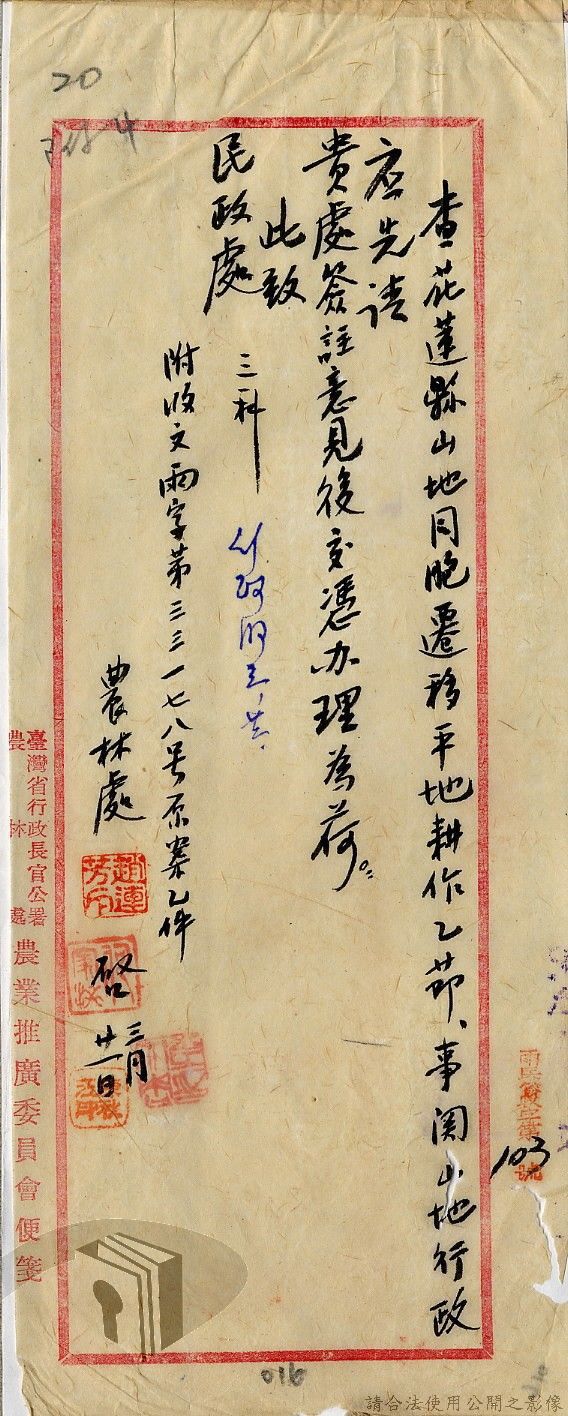 20
查花蓮縣山地同胞遷移平地耕作乙節、事関山地行政
应先请
貴處簽註意見後交憑办理為荷。
此致
民政處
三科
附收文雨字第三三一七八号原案乙件
農林處
啓
三月
廿一日
臺灣省行政長官公署
農林處
農業推廣委員會便箋
103
號
016
請合法使用公開之影像